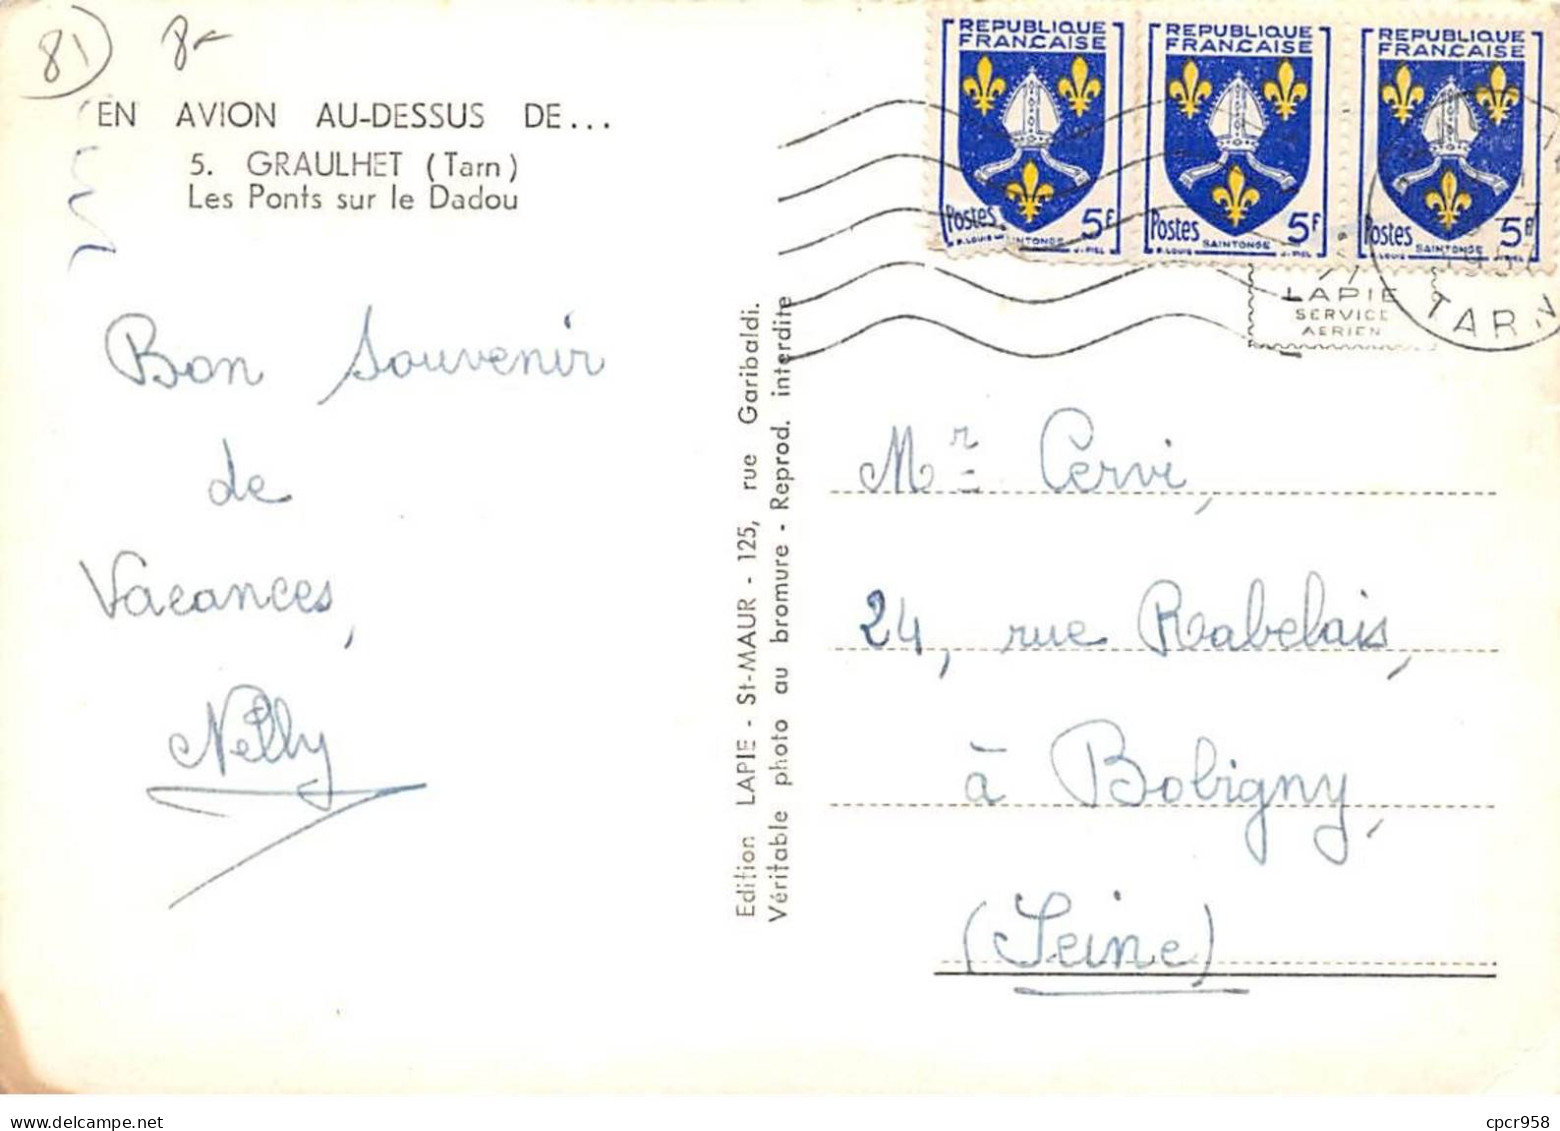 81 8-
EN AVION AU-DESSUS DE...
5. GRAULHET (Tarn)
Les Ponts sur le Dadou
Bon Souvenir
de
Vacances,
Nelly
Edition LAPIE - St-MAUR - 125, rue Garibaldi.
Véritable photo au bromure - Reprod. interdite
REPUBLIQUE FRANÇAISE
Postes 5F
P. LOUIS SAINTONGE J. PIEL
REPUBLIQUE FRANÇAISE
Postes 5F
P. LOUIS SAINTONGE J. PIEL
REPUBLIQUE FRANÇAISE
Postes 5F
P. LOUIS SAINTONGE J. PIEL
LAPIE
SERVICE
AERIEN
TARN
Mr Cervi,
24, rue Rabelais,
à Bobigny,
(Seine)
cpcr958